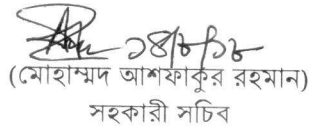 ১৪/৮/১৮
(মোহাম্মদ আশফাকুর রহমান)
সহকারী সচিব